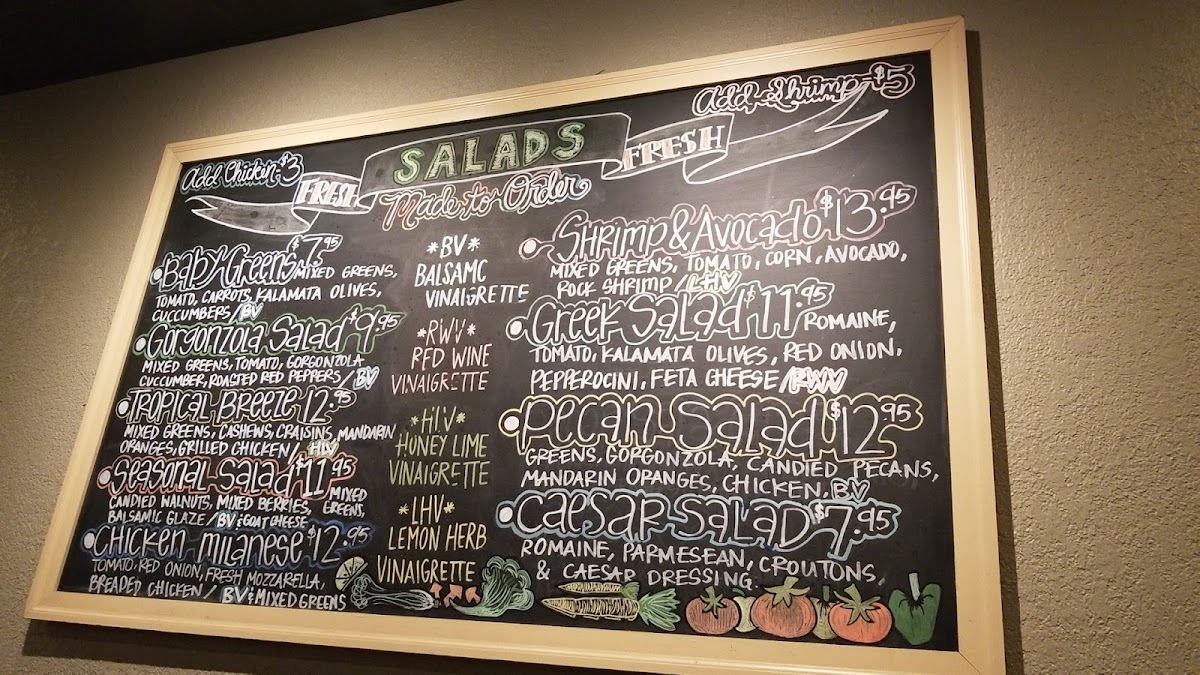 Add Chicken $3
Add Shrimp $5
FRESH SALADS FRESH
Made to Order
Baby Greens $7.95 MIXED GREENS,
TOMATO, CARROTS, KALAMATA OLIVES,
CUCCUMBERS / BV
Gorgonzola Salad $9.95
MIXED GREENS, TOMATO, GORGONZOLA
CUCCUMBER, ROASTED RED PEPPERS / BV
TROPICAL BREEZE 12.95
MIXED GREENS, CASHEWS, CRAISINS, MANDARIN
ORANGES, GRILLED CHICKEN / HLV
Seasonal Salad $11.95 MIXED
CANDIED WALNUTS, MIXED BERRIES, GREENS,
BALSAMIC GLAZE / BV & GOAT CHEESE
CHICKEN MILANESE $12.95
TOMATO, RED ONION, FRESH MOZZARELLA,
BREADED CHICKEN / BV & MIXED GREENS
*BV*
BALSAMC
VINAIGRETTE
*RWV*
RED WINE
VINAIGRETTE
*HLV*
HONEY LIME
VINAIGRETTE
*LHV*
LEMON HERB
VINAIGRETTE
SHRIMP & AVOCADO $13.95
MIXED GREENS, TOMATO, CORN, AVOCADO,
ROCK SHRIMP / LHV
Greek Salad $11.95 ROMAINE,
TOMATO, KALAMATA OLIVES, RED ONION,
PEPPEROCINI, FETA CHEESE / RWV
Pecan Salad $12.95
GREENS, GORGONZOLA, CANDIED PECANS,
MANDARIN ORANGES, CHICKEN, BV
Caesar Salad $7.95
ROMAINE, PARMESEAN, CROUTONS,
& CAESAR DRESSING.